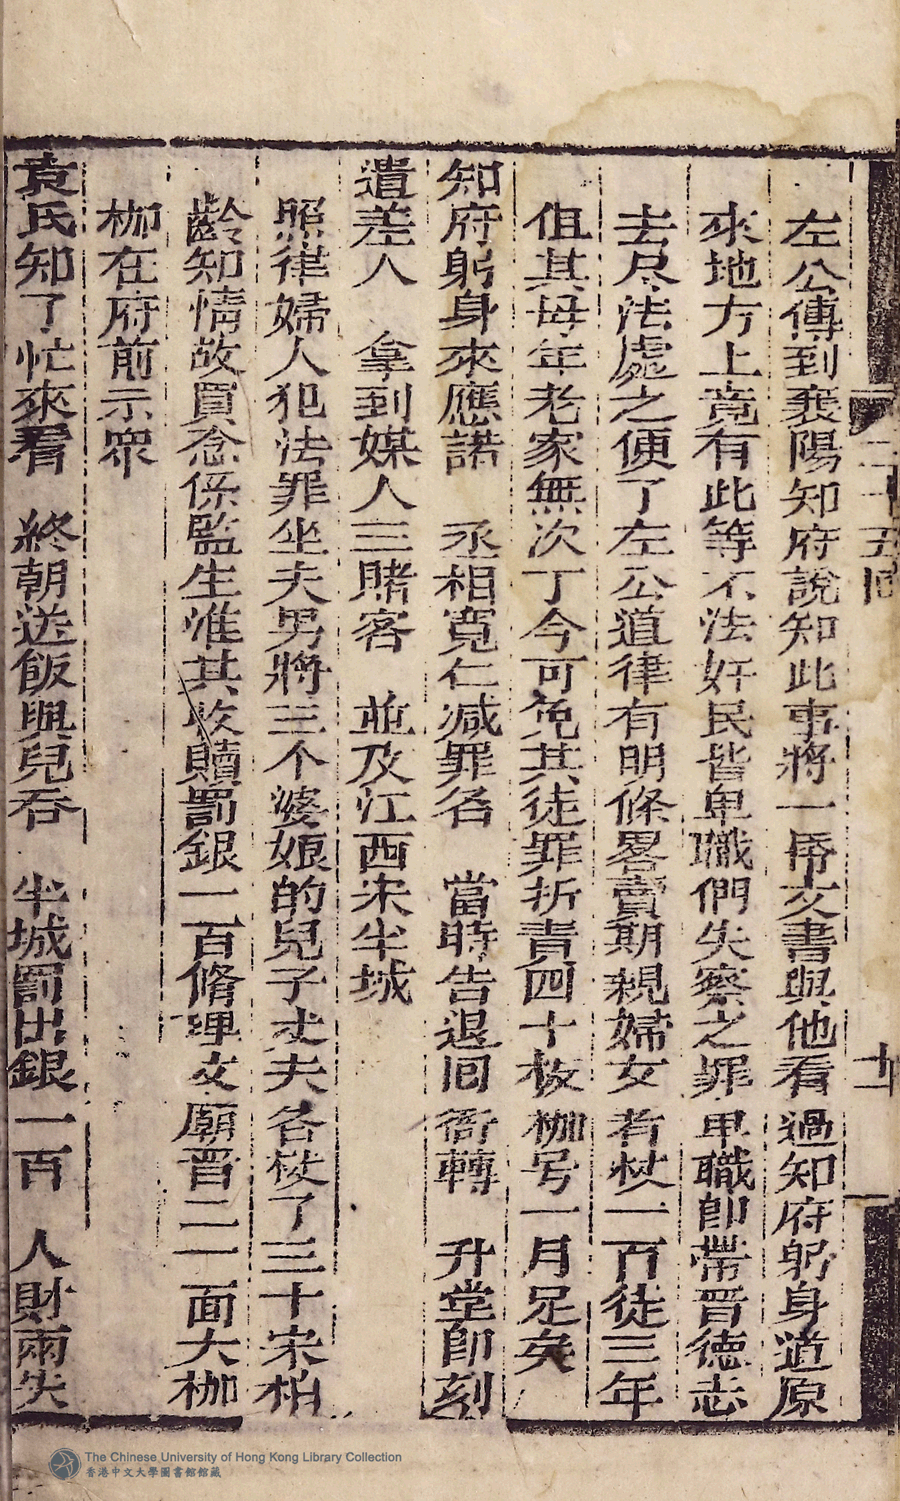 二十五回
十一
左公傳到襄陽知府說知此事將一昋文書與他看過知府躬身道原
來地方上竟有此等不法奸民皆卑職們失察之罪卑職即帶晋德志
去尽法處之便了左公道律有明條畧賣期親婦女者杖一百徒三年
但其母年老家無次丁今可免其徒罪折責四十板枷号一月足矣
知府躬身來應諾 丞相寬仁减罪名 當時告退囘衙轉 升堂即刻
遣差人 拿到媒人三賭客 並及江西宋半城
照律婦人犯法罪坐夫男將三个婆娘的兒子丈夫各杖了三十宋柏
齡知情故買念係監生准其收贖罰銀一百脩理文廟晋二一面大枷
枷在府前示衆
袁氏知了忙來看 終朝送飯與兒吞 半城罰出銀一百 人財兩失
The Chinese University of Hong Kong Library Collection
香港中文大學圖書館館藏